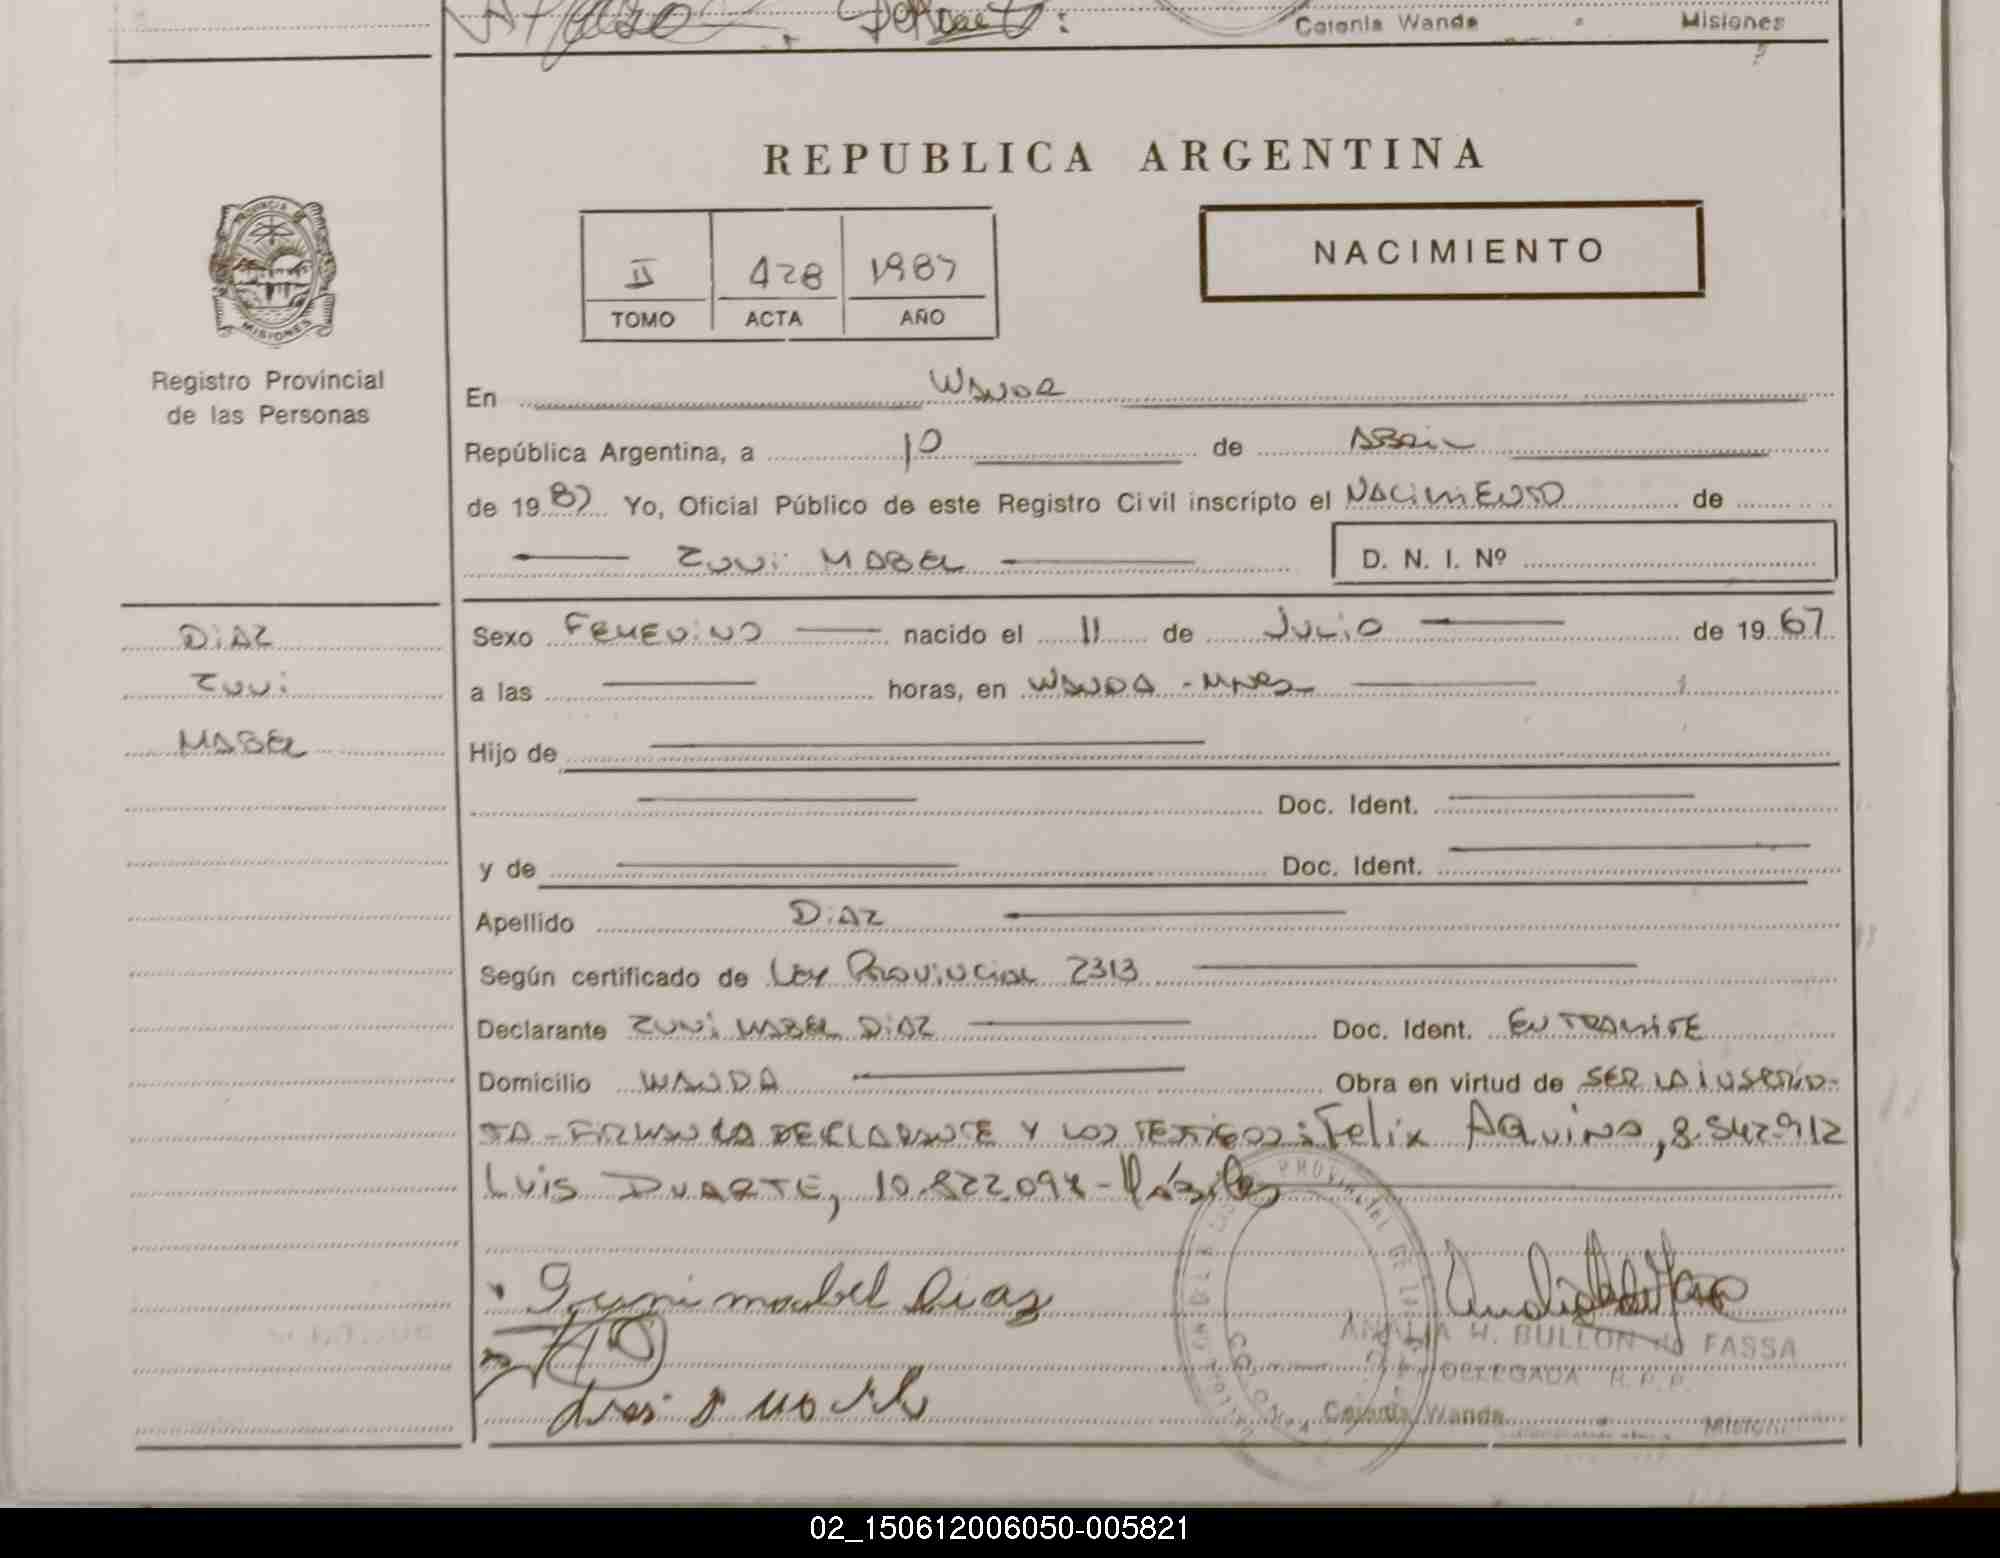 Colonia Wanda Misiones
REPUBLICA ARGENTINA
PROVINCIA DE
MISIONES
Registro Provincial
de las Personas
II 428 1987
TOMO ACTA AÑO
NACIMIENTO
En WANDA
República Argentina, a 10 de ABRIL
de 1987 Yo, Oficial Público de este Registro Civil inscripto el NACIMIENTO de
ZUNI MABEL D. N. I. Nº
DIAZ
ZUNI
MABEL
Sexo FEMENINO nacido el 11 de JULIO de 1967
a las horas, en WANDA - MNES
Hijo de
Doc. Ident.
y de Doc. Ident.
Apellido DIAZ
Según certificado de LEY PROVINCIAL 2313
Declarante ZUNI MABEL DIAZ Doc. Ident. EN TRAMITE
Domicilio WANDA Obra en virtud de SER LA INSCRIP-
TA - FIRMAN LA DECLARANTE Y LOS TESTIGOS: Felix Aquino, 8.542.912
LUIS DUARTE, 10.822.094 -
Zuni mabel Diaz
Luis Duarte
AMALIA W. BULLON de FASSA
DELEGADA R. P. P.
Colonia Wanda Misiones
02_150612006050-005821